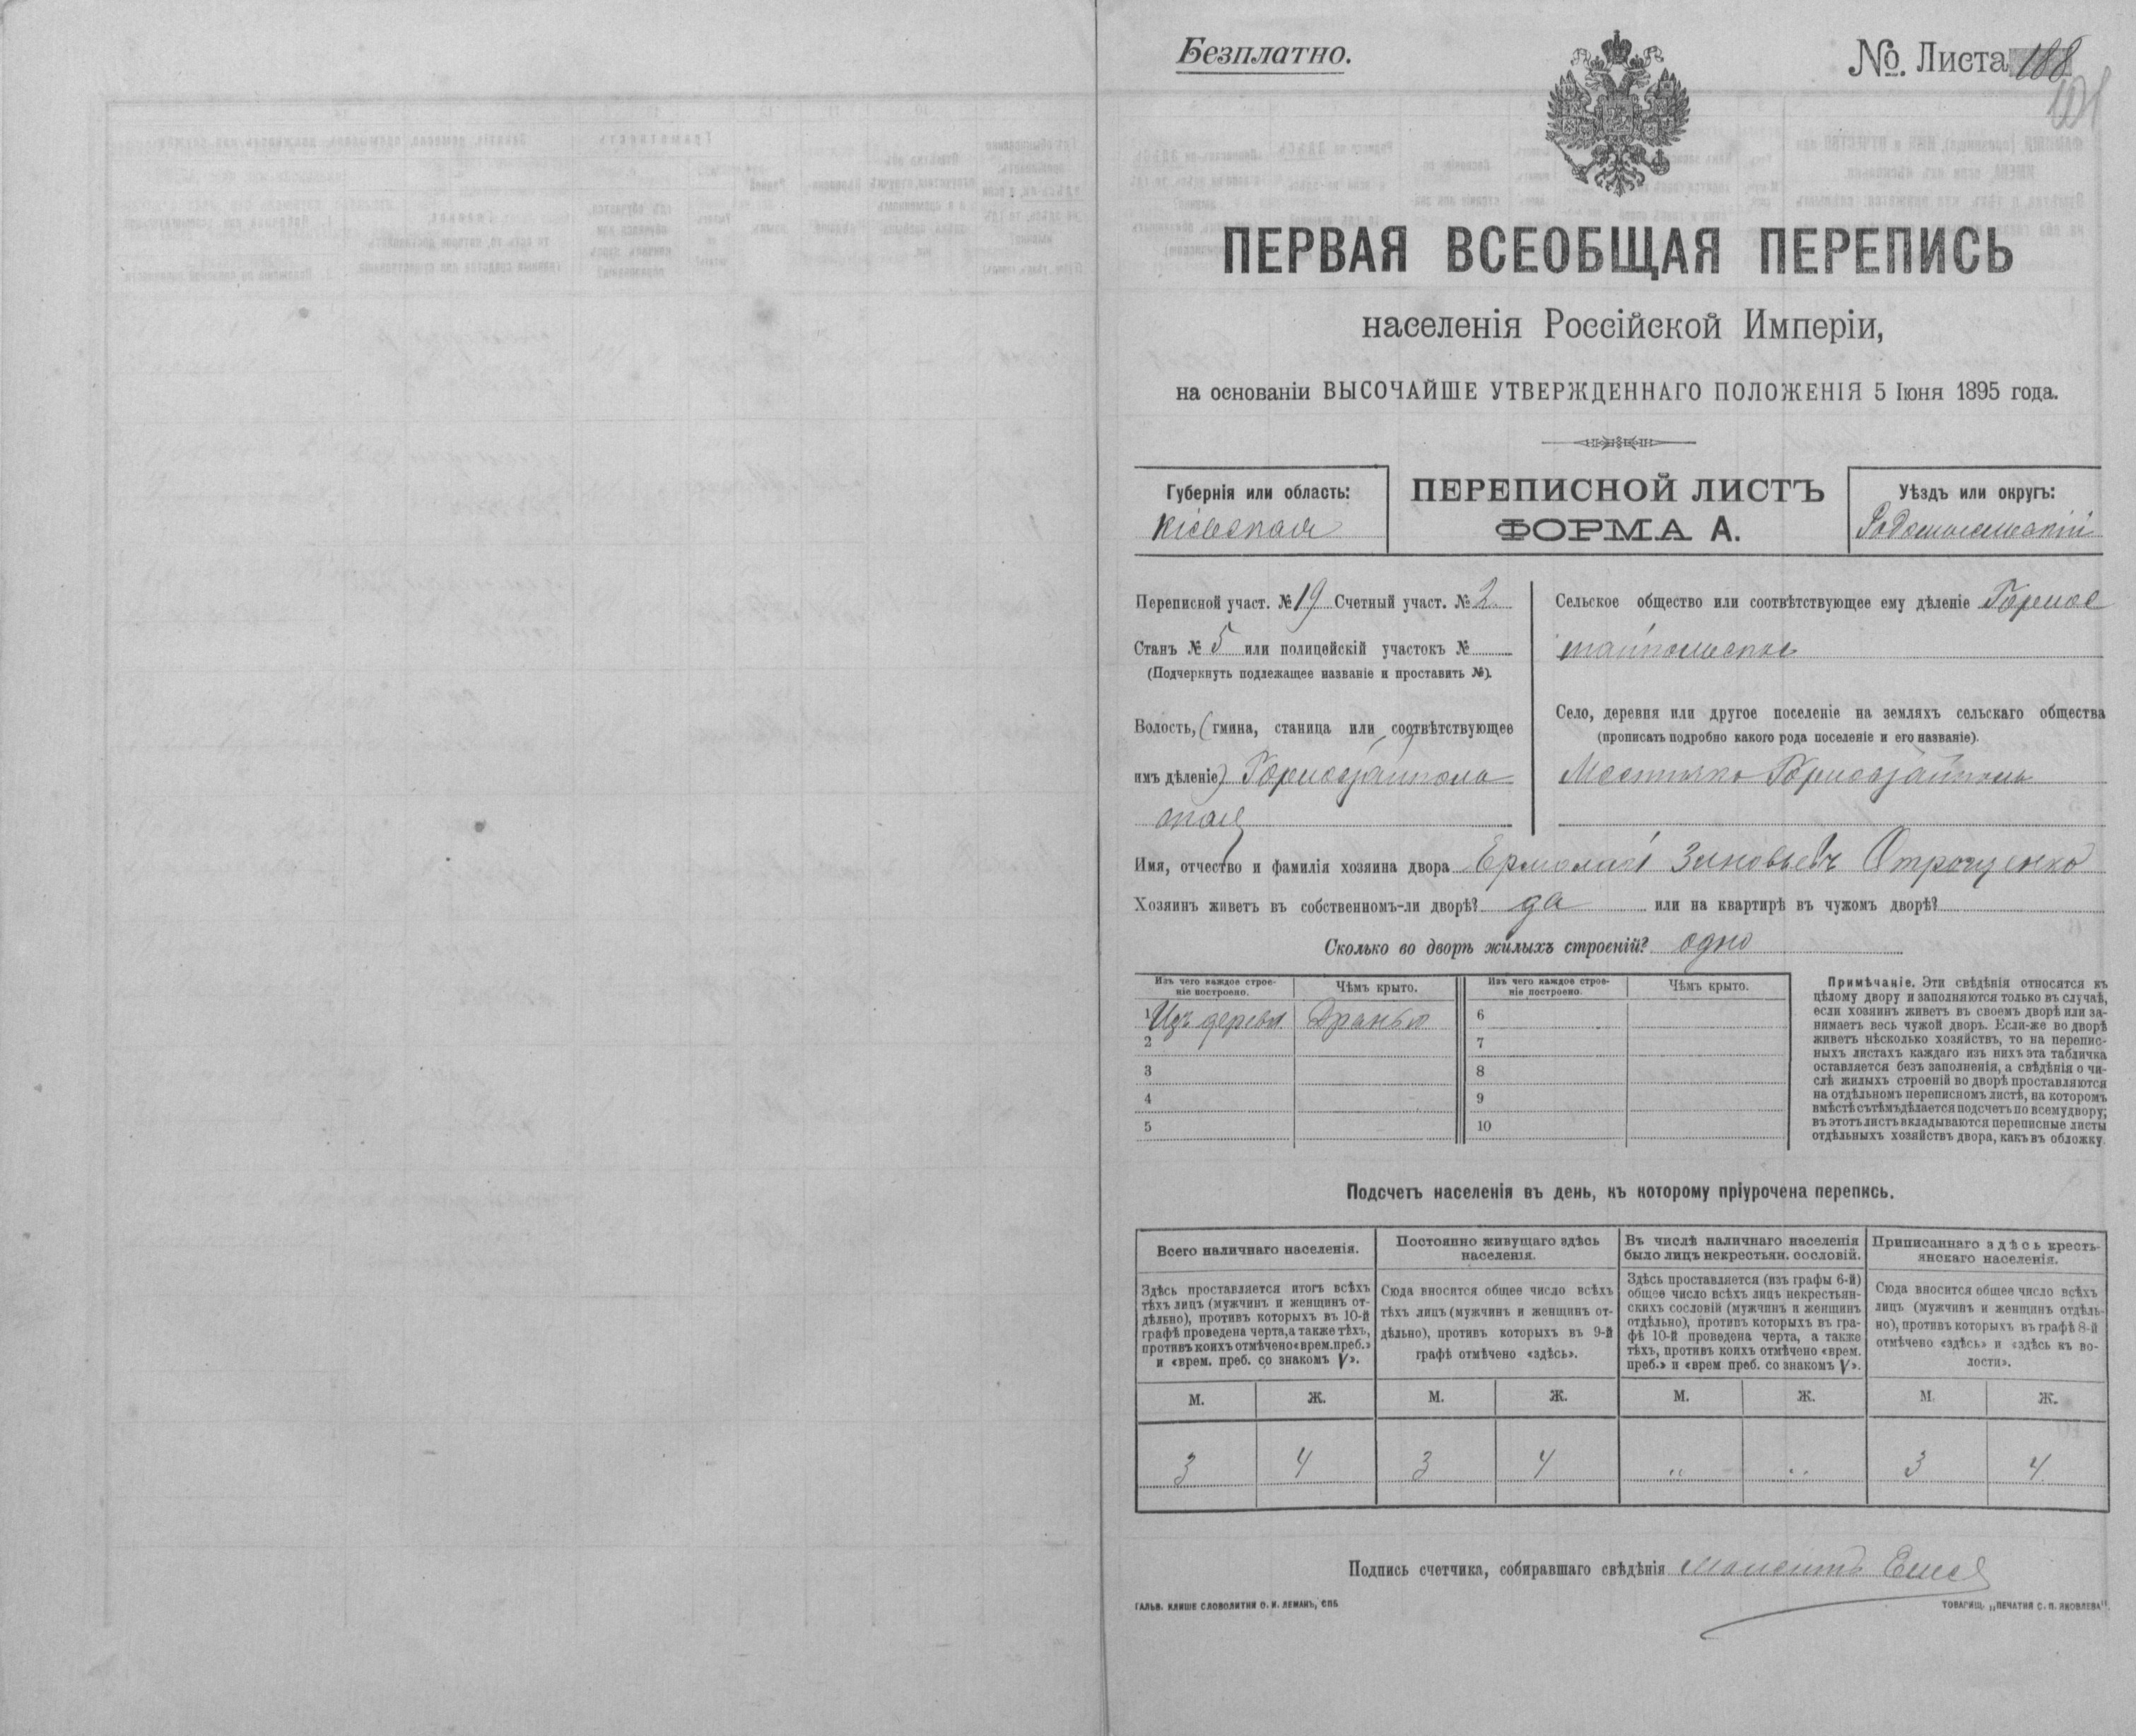 Безплатно.
№. Листа 188
ПЕРВАЯ ВСЕОБЩАЯ ПЕРЕПИСЬ
населенія Россійской Имперіи,
на основаніи ВЫСОЧАЙШЕ УТВЕРЖДЕННАГО ПОЛОЖЕНІЯ 5 Іюня 1895 года.
Губернія или область:
Кіевская
ПЕРЕПИСНОЙ ЛИСТЪ
ФОРМА А.
Уѣздъ или округъ:
Радомысльскій
Переписной участ. № 19 Счетный участ. № 2
Станъ № 5 или полицейскій участокъ №
(Подчеркнуть подлежащее названіе и проставить №).
Волость, (гмина, станица или соотвѣтствующее
имъ дѣленіе) Горностайполь
ская
Сельское общество или соотвѣтствующее ему дѣленіе Горнос
тайпольское
Село, деревня или другое поселеніе на земляхъ сельскаго общества
(прописать подробно какого рода поселеніе и его названіе).
Местечко Горностайполь
Имя, отчество и фамилія хозяина двора Ермолай Зиновьевъ Отрощенко
Хозяинъ живетъ въ собственномъ-ли дворѣ? да или на квартирѣ въ чужомъ дворѣ?
Сколько во дворѣ жилыхъ строеній? одно
Изъ чего каждое строе-
ніе построено.
Чѣмъ крыто.
Изъ чего каждое строе-
ніе построено.
Чѣмъ крыто.
1 Изъ дерева Дранью 6
2 7
3 8
4 9
5 10
Примѣчаніе. Эти свѣдѣнія относятся къ
цѣлому двору и заполняются только въ случаѣ,
если хозяинъ живетъ въ своемъ дворѣ или за-
нимаетъ весь чужой дворъ. Если-же во дворѣ
живетъ нѣсколько хозяйствъ, то на перепис-
ныхъ листахъ каждаго изъ нихъ эта табличка
оставляется безъ заполненія, а свѣдѣнія о чи-
слѣ жилыхъ строеній во дворѣ проставляются
на отдѣльномъ переписномъ листѣ, на которомъ
вмѣстѣ съ тѣмъ дѣлается подсчетъ по всему двору;
въ этотъ листъ вкладываются переписные листы
отдѣльныхъ хозяйствъ двора, какъ въ обложку.
Подсчетъ населенія въ день, къ которому пріурочена перепись.
Всего наличнаго населенія.
Здѣсь проставляется итогъ всѣхъ
тѣхъ лицъ (мужчинъ и женщинъ от-
дѣльно), противъ которыхъ въ 10-й
графѣ проведена черта, а также тѣхъ,
противъ коихъ отмѣчено «врем. преб.»
и «врем. преб. со знакомъ V».
Постоянно живущаго здѣсь
населенія.
Сюда вносится общее число всѣхъ
тѣхъ лицъ (мужчинъ и женщинъ от-
дѣльно), противъ которыхъ въ 9-й
графѣ отмѣчено «здѣсь».
Въ числѣ наличнаго населенія
было лицъ некрестьян. сословій.
Здѣсь проставляется (изъ графы 6-й)
общее число всѣхъ лицъ некрестьян-
скихъ сословій (мужчинъ и женщинъ
отдѣльно), противъ которыхъ въ гра-
фѣ 10-й проведена черта, а также
тѣхъ, противъ коихъ отмѣчено «врем.
преб.» и «врем преб. со знакомъ V».
Приписаннаго здѣсь кресть-
янскаго населенія.
Сюда вносится общее число всѣхъ
лицъ (мужчинъ и женщинъ отдѣль-
но), противъ которыхъ въ графѣ 8-й
отмѣчено «здѣсь» и «здѣсь къ во-
лости».
М. Ж. М. Ж. М. Ж. М. Ж.
3 4 3 4 „ „ 3 4
Подпись счетчика, собиравшаго свѣдѣнія
ГАЛЬВ. КЛИШЕ СЛОВОЛИТНИ О. И. ЛЕМАНЪ, СПБ.
ТОВАРИЩ. „ПЕЧАТНЯ С. П. ЯКОВЛЕВА".